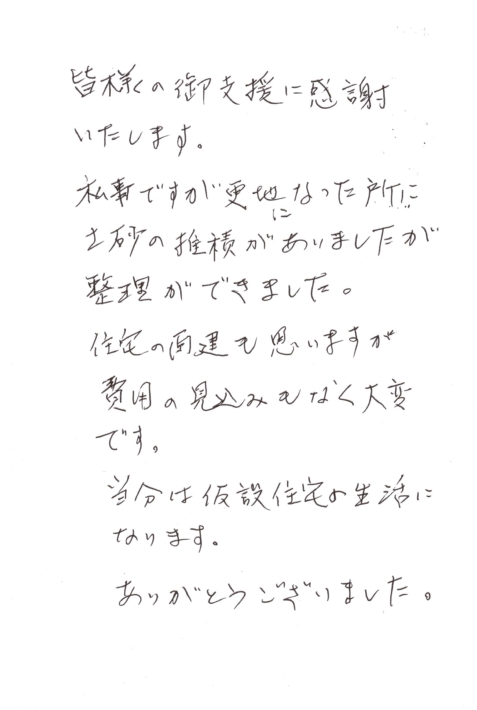 皆様の御支援に感謝
いたします。
私事ですが更地になった所に
土砂の推積がありましたが
整理ができました。
住宅の再建も思いますが
費用の見込みもなく大変
です。
当分は仮設住宅の生活に
なります。
ありがとうございました。